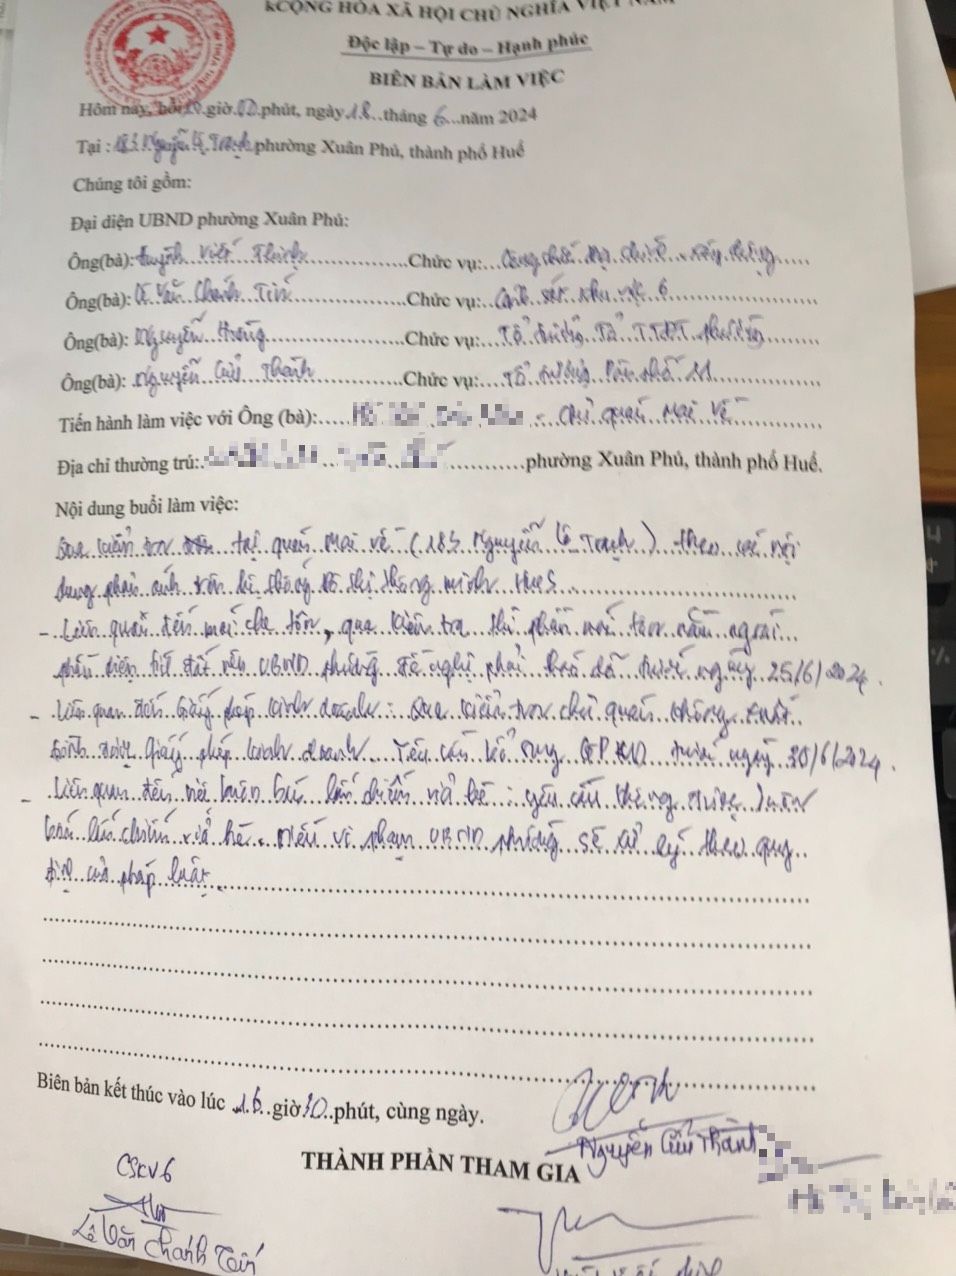 CỘNG HÒA XÃ HỘI CHỦ NGHĨA VIỆT NAM
Độc lập – Tự do – Hạnh phúc
BIÊN BẢN LÀM VIỆC
Hôm nay, hồi giờ 00 phút, ngày 18 tháng 6 năm 2024
Tại : 183 Nguyễn Lộ Trạch phường Xuân Phú, thành phố Huế
Chúng tôi gồm:
Đại diện UBND phường Xuân Phú:
Ông(bà): Huỳnh Viết Thịnh Chức vụ: Công chức địa chính - xây dựng
Ông(bà): Lê Văn Chánh Tín Chức vụ: Cảnh sát khu vực 6
Ông(bà): Nguyễn Hoàng Chức vụ: Tổ trưởng Tổ TTĐT phường
Ông(bà): Nguyễn Cửu Thành Chức vụ: Tổ trưởng dân phố 11
Tiến hành làm việc với Ông (bà): - Chủ quán Mai Về
Địa chỉ thường trú: phường Xuân Phú, thành phố Huế.
Nội dung buổi làm việc:
Qua kiểm tra tại quán Mai Về (183 Nguyễn Lộ Trạch) theo nội
dung phản ánh trên hệ thống đô thị thông minh HueS
- Liên quan đến mái che tôn, qua kiểm tra thì phần mái tôn nằm ngoài
phần diện tích đất nên UBND phường đề nghị phải tháo dỡ trước ngày 25/6/2024.
- Liên quan đến Giấy phép kinh doanh : Qua kiểm tra chủ quán không xuất
trình được giấy phép kinh doanh. Yêu cầu bổ sung GPKD trước ngày 30/6/2024.
- Liên quan đến việc buôn bán lấn chiếm vỉa hè : yêu cầu không được buôn
bán lấn chiếm vỉa hè. Nếu vi phạm UBND phường sẽ xử lý theo quy
định của pháp luật.
Biên bản kết thúc vào lúc 16 giờ 30 phút, cùng ngày.
Nguyễn Cửu Thành
THÀNH PHẦN THAM GIA
CSKV6
Lê Văn Chánh Tín